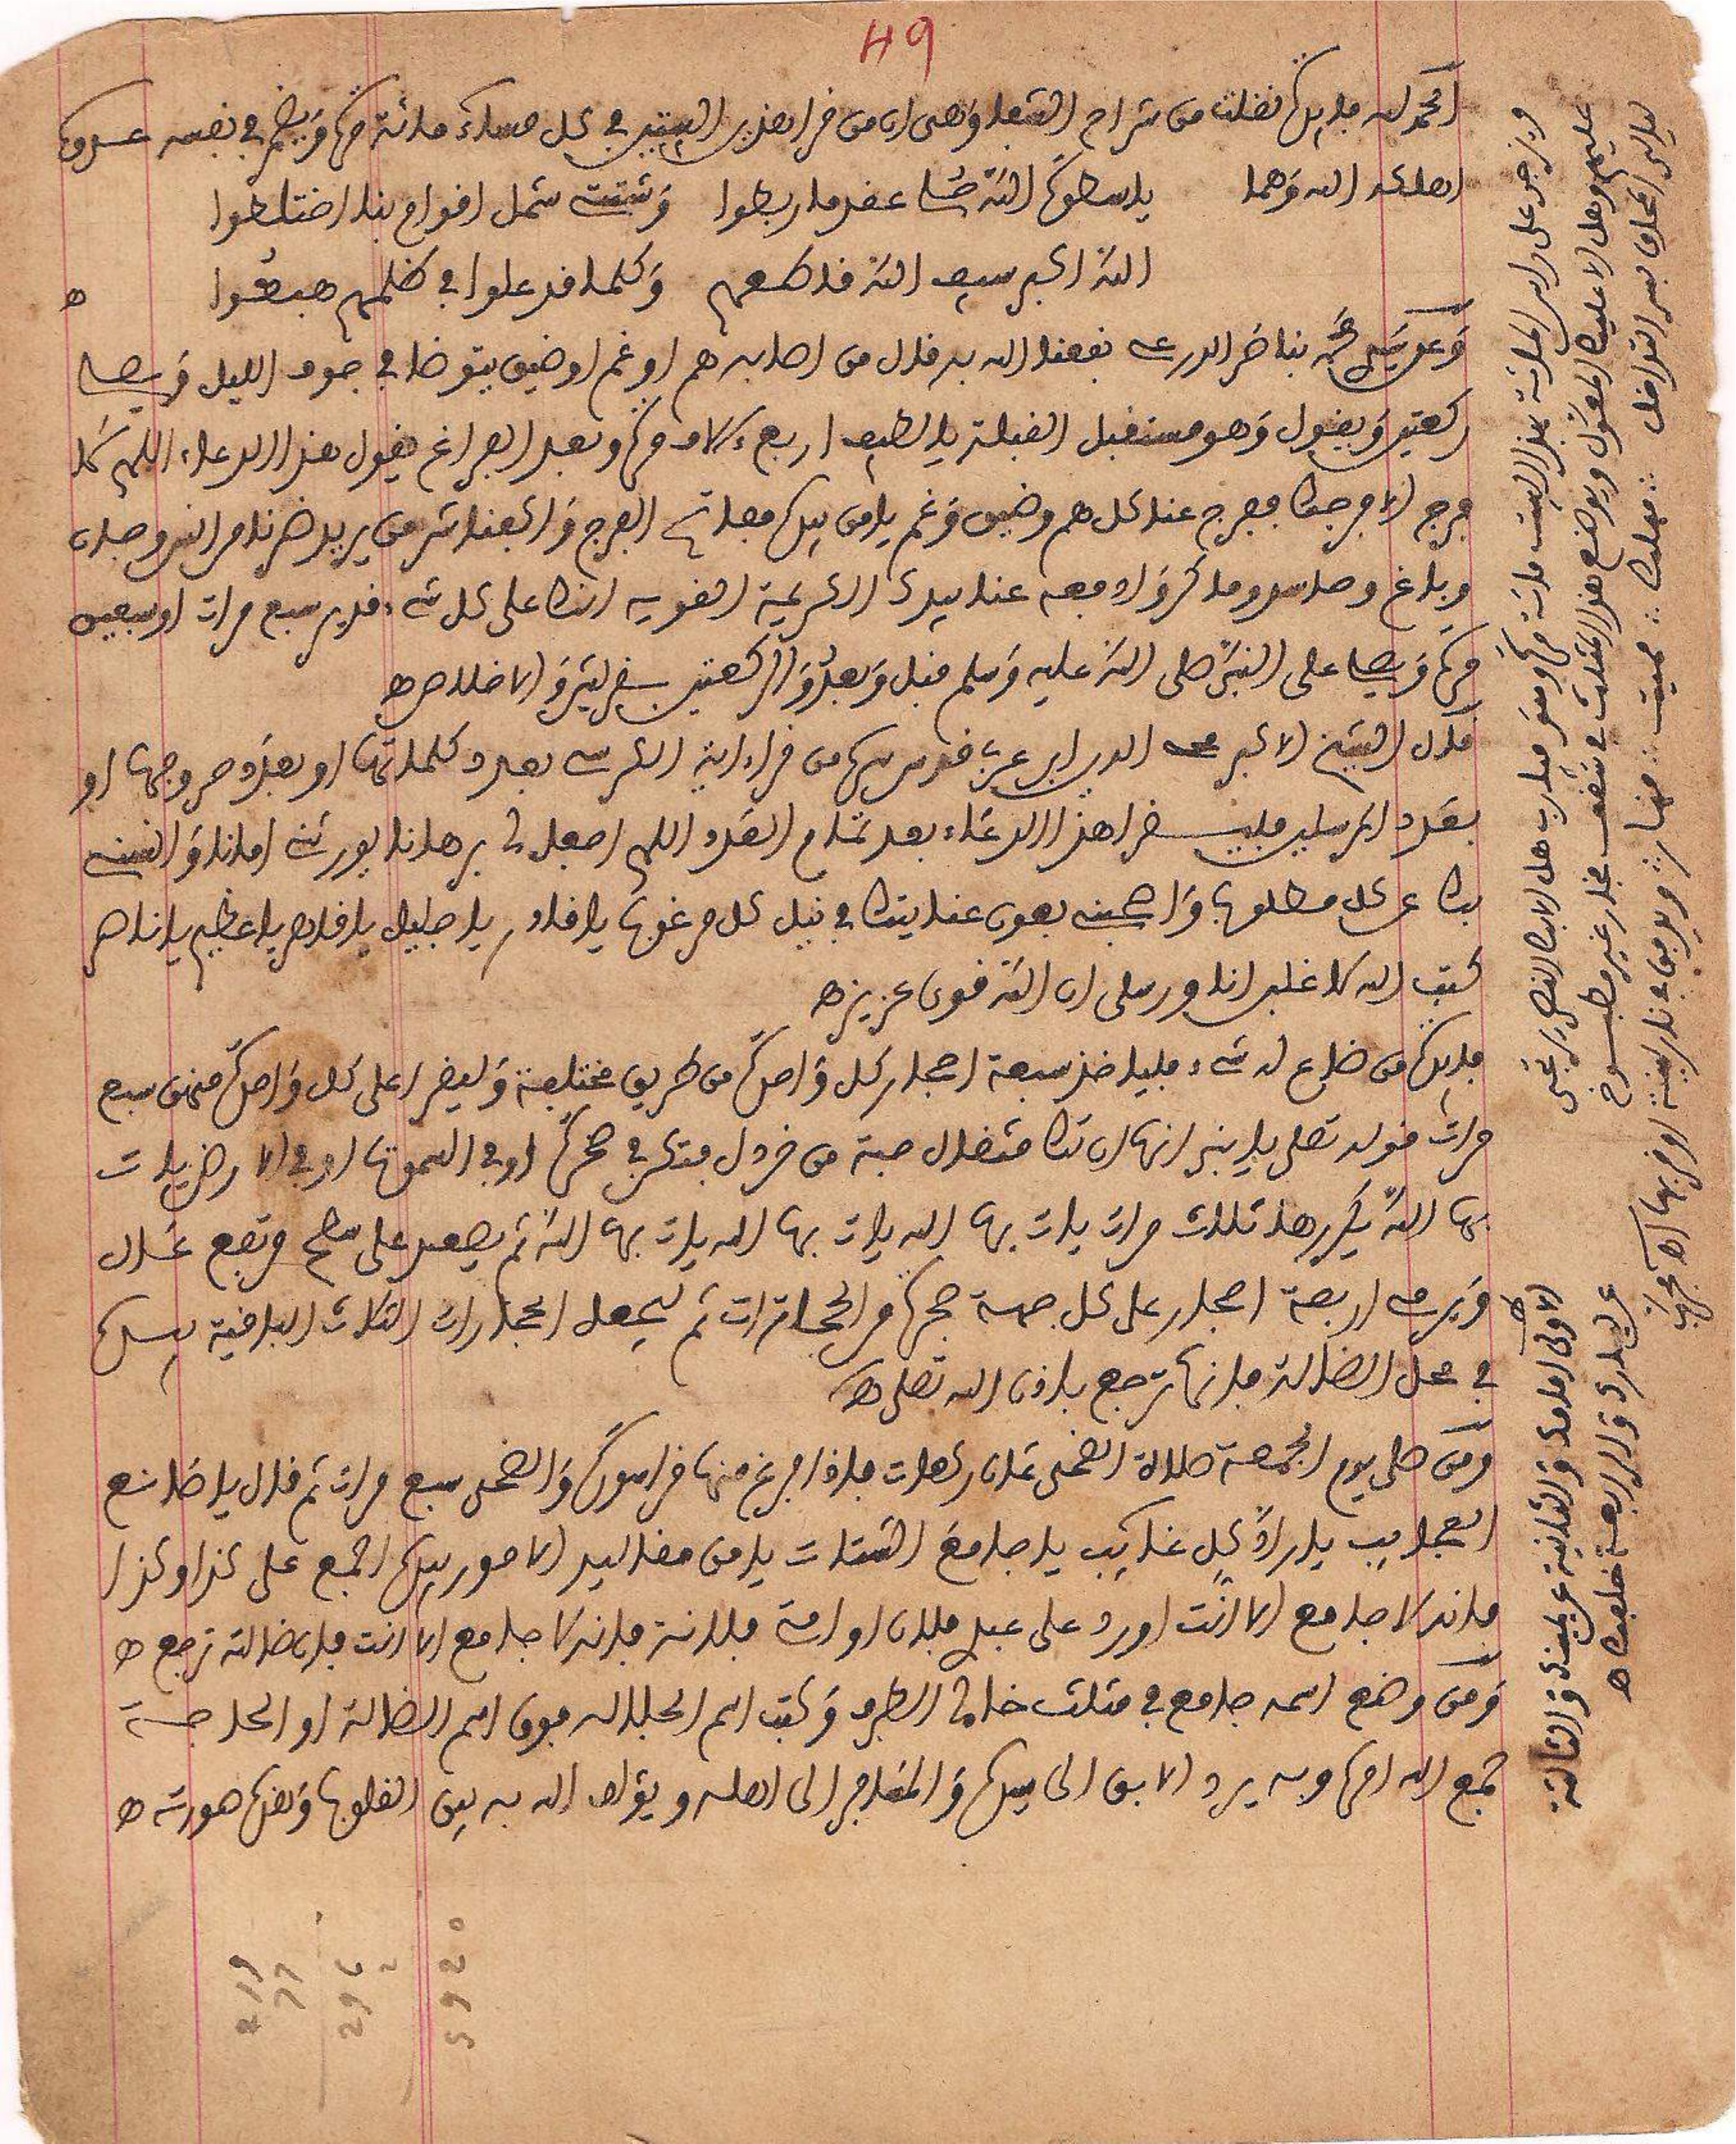 49
الحمد لله فايدة نقلت من شراح الشفا وهى ان من قرا هذين البيتين في كل مساء مائة مرة ويضمر في نفسه عدوه
اهلكه الله وهما يا سطوة الله حلى عقد ما ربطوا وشتت شمل اقوام بنا اختلطوا
الله اكبر سيف الله قاطعهم وكلما قد علوا في ظلمهم هبطوا ه
وعن سيدي محمد بناصر الدرعي نفعنا الله به قال من اصابه هم او غم او ضيق يتوضا في جوف الليل ويصلي
ركعتين ويقول وهو مستقبل القبلة يا لطيف اربعة ءالاف مرة وبعد الفراغ يقول هذا الدعاء اللهم كما
فرج الا فرجك ففرج عنا كل هم وضيق وغم يا من بيده مفاتح الفرج واكفنا شر من يريد ضرنا من انس وجان
وباغ وحاسد وماكر وادفعه عنا بيدك الكريمة القوية انك على كل شيء قدير سبع مرات او سبعين
مرة ويصلي على النبي صلى الله عليه وسلم قبل وبعد والركعتين بقريش والاخلاص ه
قال الشيخ الاكبر محي الدين ابن عربي قدس سره من قراء اية الكرسي بعدد كلماتها او بعدد حروفها او
بعدد المرسلين فليقرا هذا الدعاء بعد تمام العدد اللهم اجعل لي برهانا يورثني امانا وانسني
بك عن كل مطلوب واصحبني بعون عنايتك في نيل كل مرغوب يا قادر يا جليل يا قاهر يا عظيم يا ناصر
كتب الله لاغلبن انا ورسلي ان الله قوي عزيز ه
فايدة من ضاع له شيء فلياخذ سبعة احجار كل واحدة من طريق مختلفة وليقرا على كل واحدة منهن سبع
مرات قوله تعلى يا بني انها ان تك مثقال حبة من خردل فتكن في صخرة او في السموت او في الارض يات
بها الله يكررها ثلاث مرات يات بها الله يات بها الله يات بها الله ثم يصعد على سطح مرتفع عال
ويرمي اربعة احجار على كل جهة حجرة من الحجارات ثم ليجعل الحجارات الثلاث الباقية بيده
في محل الضالة فانها ترجع باذن الله تعلى ه
ومن صلى يوم الجمعة صلاة الضحى ثمان ركعات فاذا فرغ منها قرا سورة والضحى سبع مرات ثم قال يا صانع
العجايب يا راد كل غايب يا جامع الشتات يا من مقاليد الامور بيده اجمع على كذا وكذا
فانه لا جامع الا انت او رد على عبد فلان او امة فلانة فانه لا جامع الا انت فان ضالته ترجع ه
ومن وضع اسمه جامع في مثلث خالي الطرف وكتب اسم الجلالة فوق اسم الضالة او الحاجة
جمع الله امره وبه يرد الابق الى سيده والمسافر الى اهله ويؤلف الله به بين القلوب وهذه صورته ه
ويزجر على راس المائة بهذا البيت مائة مرة وهو فيا رب هل الا بك النصر يرتجى
عليهم وهل الا عليك المعول ويوضع هذا المثلث في شقف فخار غير مطبوخ
ليالي المحاق بسر التوافل مهلك مميت منهار ويدفن في نار لينة او قربها اه مجرب
الاولى امامك والثانية عن يمينك والثالثة
عن يسارك والرابعة خلفك ه
219
77
296
2
5920